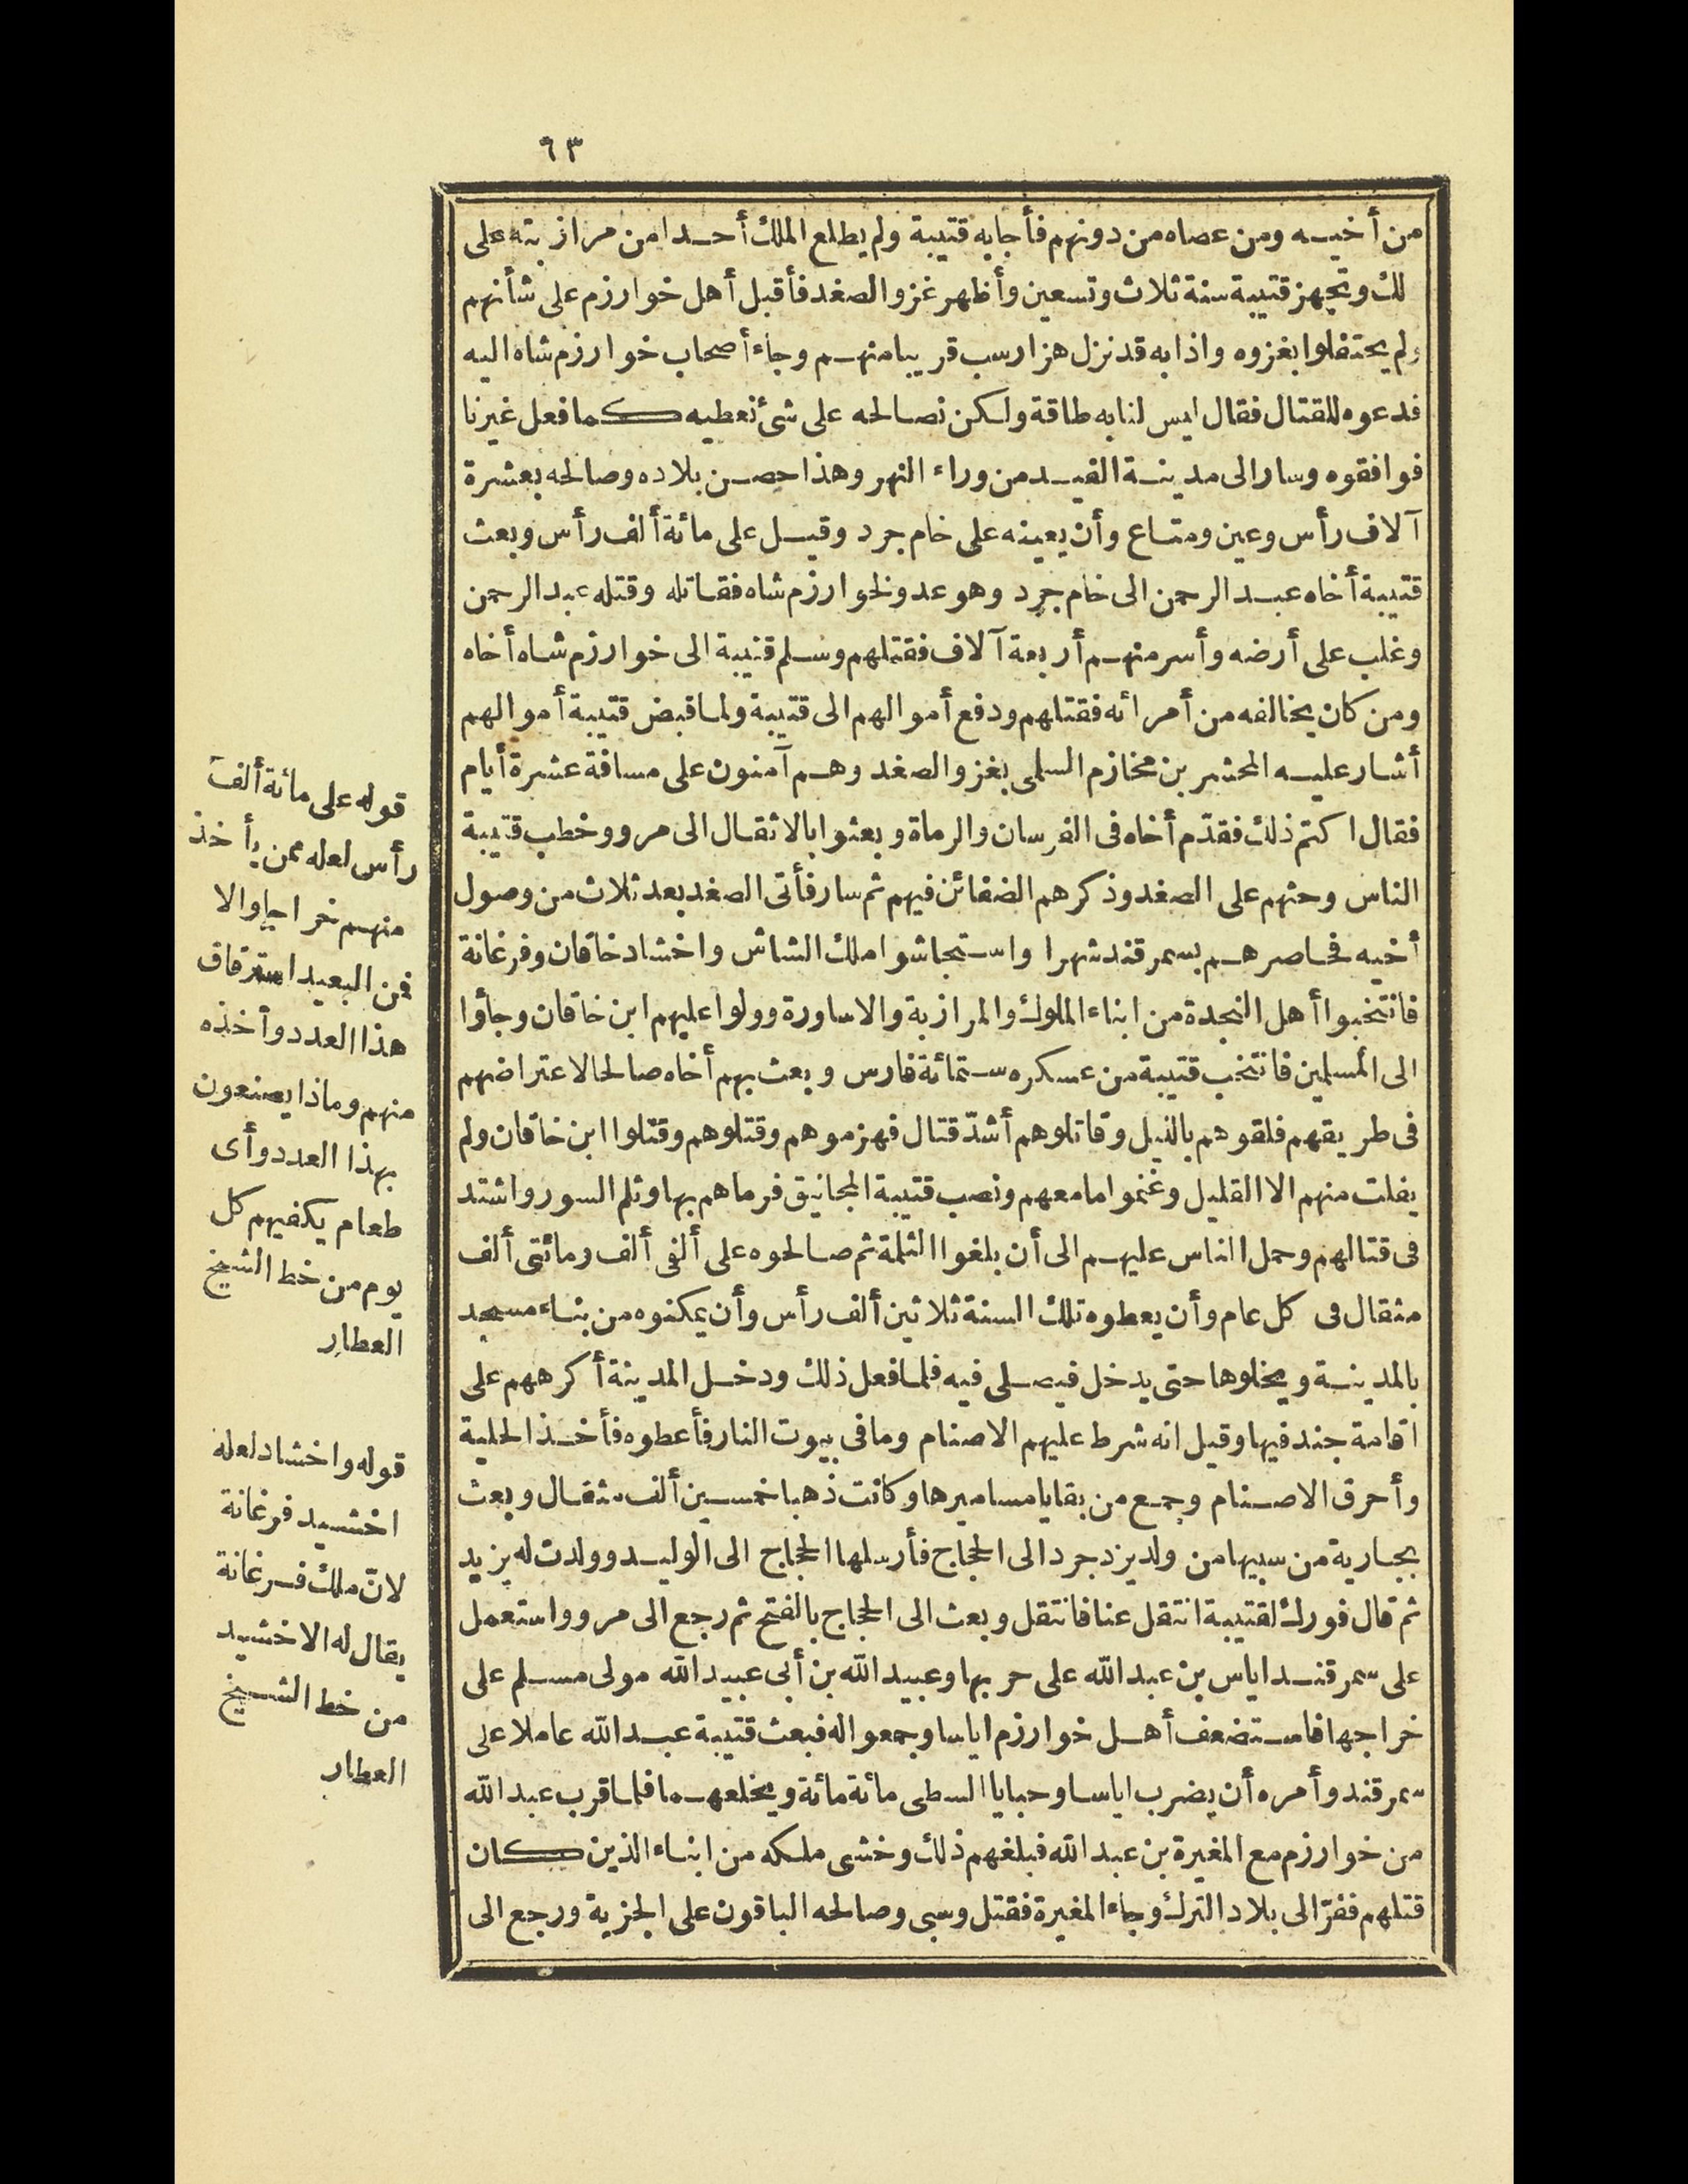 ٦٣
من أخيه ومن عصاه من دونهم فأجابه قتيبة ولم يطلع الملك أحدا من مرازبته على
لك وتجهز قتيبة سنة ثلاث وتسعين وأظهر غزو الصغد فأقبل أهل خوارزم على شأنهم
ولم يحتفلوا بغزوه واذا به قد نزل هزارسب قريبا منهم وجاء أصحاب خوارزم شاه اليه
فدعوه للقتال فقال ليس لنا به طاقة ولكن نصالحه على شئ نعطيه كما فعل غيرنا
فوافقوه وسار الى مدينة الفيد من وراء النهر وهذا حصن بلاده وصالحه بعشرة
آلاف رأس وعين ومتاع وأن يعينه على خام جرد وقيل على مائة ألف رأس وبعث
قتيبة أخاه عبد الرحمن الى خام جرد وهو عدو لخوارزم شاه فقاتله وقتله عبد الرحمن
وغلب على أرضه وأسر منهم أربعة آلاف فقتلهم وسلم قتيبة الى خوارزم شاه أخاه
ومن كان يخالفه من أمرائه فقتلهم ودفع أموالهم الى قتيبة ولما قبض قتيبة أموالهم
أشار عليه المحشر بن مخازم السلمى بغزو الصغد وهم آمنون على مسافة عشرة أيام
فقال اكتم ذلك فقدّم أخاه فى الفرسان والرماة وبعثوا بالاثقال الى مرو وخطب قتيبة
الناس وحثهم على الصغد وذكرهم الضغائن فيهم ثم سار فأتى الصغد بعد ثلاث من وصول
أخيه فحاصرهم بسمرقند شهرا واستجاشوا ملك الشاش واخشاد خاقان وفرغانة
فانتخبوا أهل النجدة من ابناء الملوك والمرازبة والاساورة وولوا عليهم ابن خاقان وجاؤا
الى المسلمين فانتخب قتيبة من عسكره ستمائة فارس وبعث بهم أخاه صالحا لاعتراضهم
فى طريقهم فلقوهم بالليل وقاتلوهم أشدّ قتال فهزموهم وقتلوهم وقتلوا ابن خاقان ولم
يفلت منهم الا القليل وغنموا ما معهم ونصب قتيبة المجانيق فرماهم بها وثلم السور واشتد
فى قتالهم وحمل الناس عليهم الى أن بلغوا الثلمة ثم صالحوه على ألفى ألف ومائتى ألف
مثقال فى كل عام وأن يعطوه تلك السنة ثلاثين ألف رأس وأن يمكنوه من بناء مسجد
بالمدينة ويخلوها حتى يدخل فيصلى فيه فلما فعل ذلك ودخل المدينة أكرههم على
اقامة جند فيها وقيل انه شرط عليهم الاصنام وما فى بيوت النار فأعطوه فأخذ الحلية
وأحرق الاصنام وجمع من بقايا مساميرها وكانت ذهبا خمسين ألف مثقال وبعث
بجارية من سبيها من ولد يزدجرد الى الحجاج فأرسلها الحجاج الى الوليد وولدت له يزيد
ثم قال فورك لقتيبة انتقل عنا فانتقل وبعث الى الحجاج بالفتح ثم رجع الى مرو واستعمل
على سمرقند اياس بن عبد الله على حربها وعبيد الله بن أبى عبيد الله مولى مسلم على
خراجها فاستضعف أهل خوارزم اياسا وجمعوا له فبعث قتيبة عبد الله عاملا على
سمرقند وأمره أن يضرب اياسا وحبايا السطى مائة مائة ويخلعهما فلما قرب عبد الله
من خوارزم مع المغيرة بن عبد الله فبلغهم ذلك وخشى ملكه من ابناء الذين كان
قتلهم ففرّ الى بلاد الترك وجاء المغيرة فقتل وسبى وصالحه الباقون على الجزية ورجع الى
قوله على مائة ألف
رأس لعله ممن يأخذ
منهم خراجا والا
فمن البعيد استرقاق
هذا العدد وأخذه
منهم وماذا يصنعون
بهذا العدد وأى
طعام يكفيهم كل
يوم من خط الشيخ
العطار
قوله واخشاد لعله
اخشيد فرغانة
لانّ ملك فرغانة
يقال له الاخشيد
من خط الشيخ
العطار